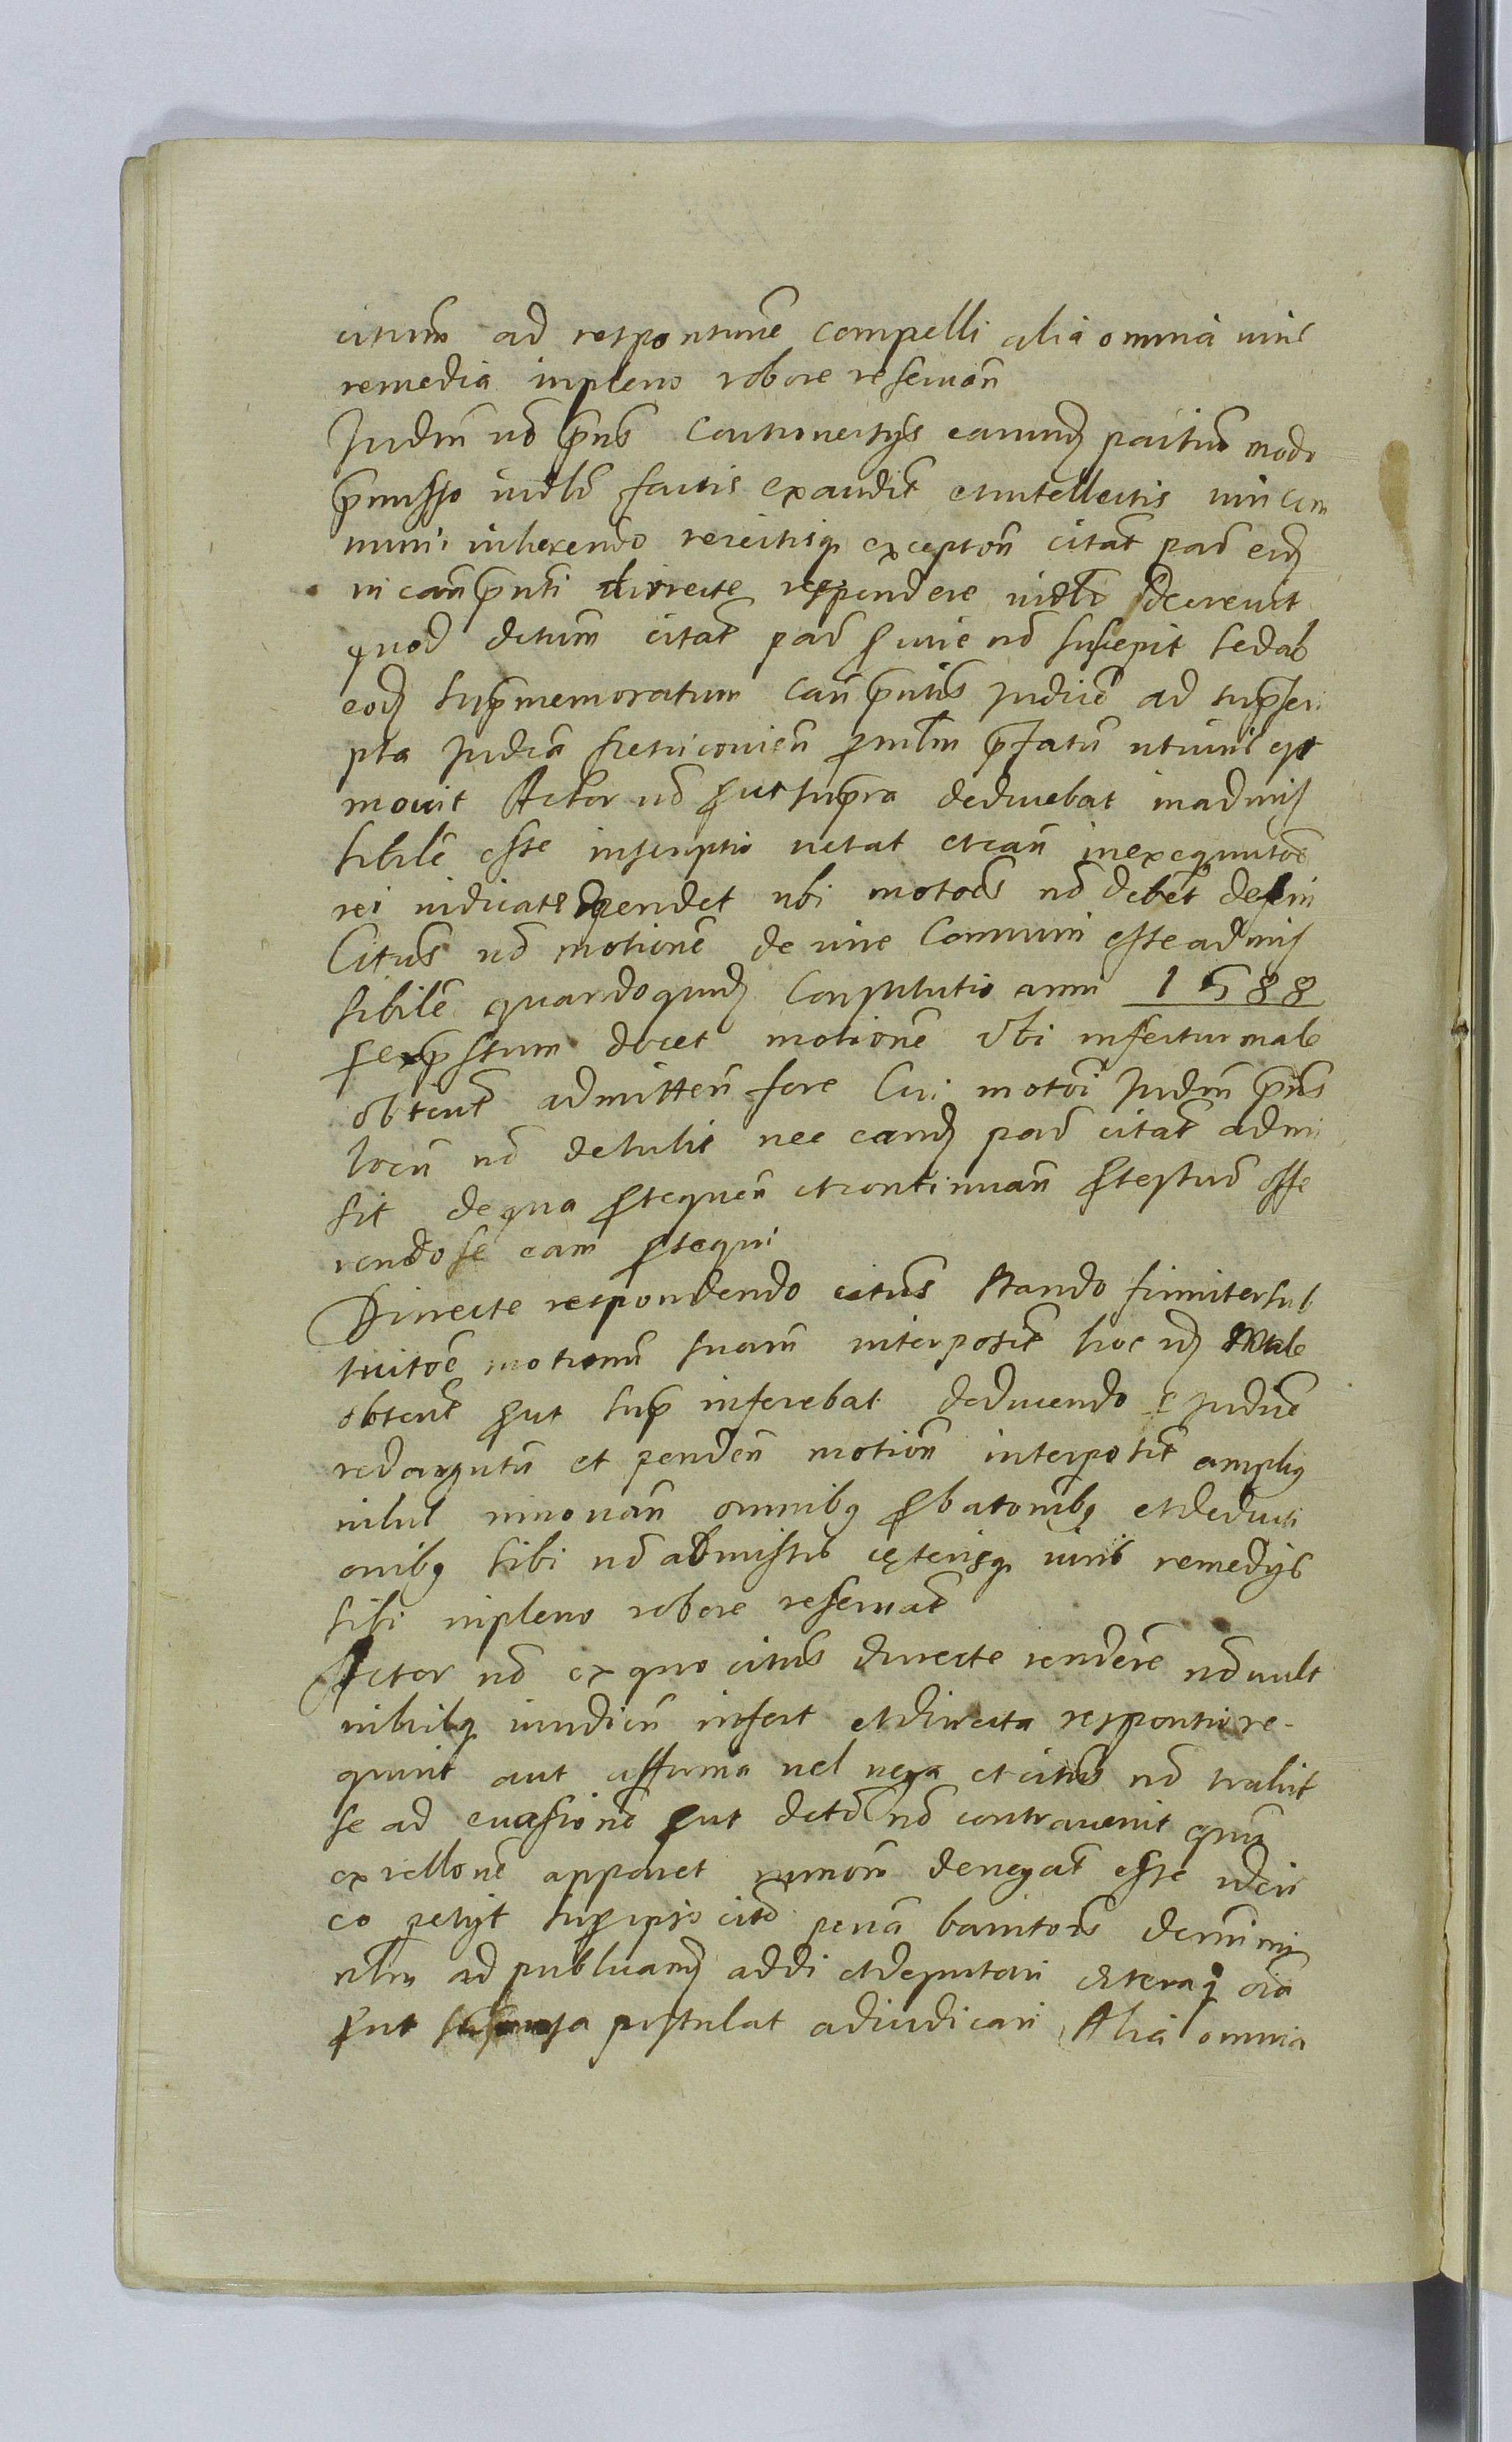 citum̃ ad responsione̅ compelli alia omnia iuris
remedia inpleno robore reseruan̅
Judm̃ uo p̃ns Controuersys earund partiu̅ modo
p̃misso iudlr̃ factis exaudit̃ etintellectis iuri com
muni inherendo reiectisq exception̅ citat̃ pars̃ eid
in cau̅ p̃nti directe respondere iudlr̃ decreuit
quod dctum̃ citat̃ pars̃ p iure no̅ suscepit sedab
eod sup̃memoratum cau̅ p̃ntis Judice̅ ad supr̃scri
pta Judicia̅ p̃mltm̃ p̃fatu̅ uti iuris est
mouit Actor uo put sup̃ra deducebat inadmis
sibile̅ esse inscriptio uetat etcau̅ inexequuto̅e
rei iudicate pendet ubi moto̅is no̅ debet̃
Citus̃ uo motione̅ de iure Communi esse admis
sibile̅ quandoquid Constitutio anni 1588
docet motione̅ Ubi infertur male
obtent̃ admitten̅ fore Cui moto̅i Judm̃ p̃ns
locu̅ no̅ detulit nec eand pars̃ citat̃ admi
sit dequa psequen̅ etcontinuan̅ ptestus̃ offe
rendo se eam psequi
Directe respondendo citus̃ stando firmiter
motionis̃ suam̃ interposit̃ hoc id Male
obtent̃ put sup̃ inferebat deducendo e Judice̅
redargutu̅ et penden̅ motion̅ interposit̃ amplius
nihil innouan̅ omnibq pbatonibq etdeducti
onibq sibi no̅ admissis cęterisq iuris remedys
sibi inpleno robore reseruat̃
Actor uo ex quo citus̃ directe rendere̅ no̅ uult
nihilq iuridicu̅ infert etdirecta responsio re-
quirit aut affirma uel nega etcitus̃ no̅ trahit
se ad euasione̅ put dcto̅ no̅ contrauenit quin
ex rellone̅ apparet denegat̃ esse idcir
co petyt sup ipso cito̅ pena̅ banitois̃ decerni
nlm̃ ad publicand addi etdeputari cęteraq oia̅
put postulat adiudicari Alia omnia